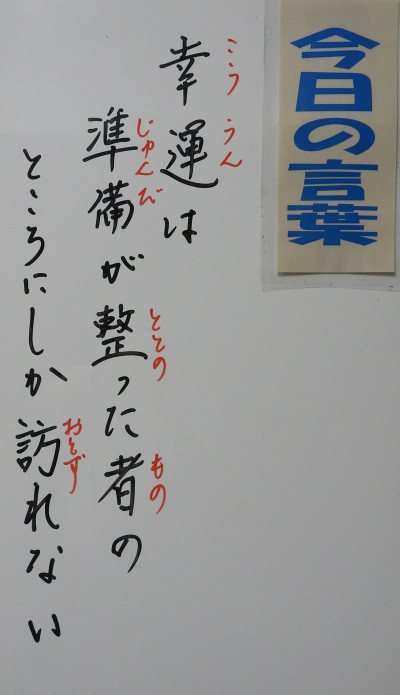 今日の言葉
こううん
幸運は
じゅんび ととの もの
準備が整った者の
おとず
ところにしか訪れない